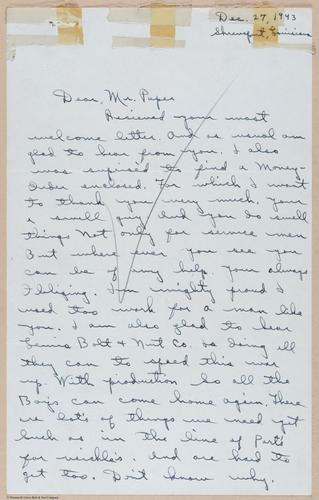 Dec. 27, 1943
Shreveport, Louisiana
Dear, Mr. Pupes
Recieved your most
welcome letter. And as usual am
glad to hear from you. I also
was suprised to find a Money-
Order enclosed. For which I want
to thank you very much. Your
a swell guy and you do swell
things not only for service men
But where ever you see you
can be of my help. Your always
Obliging. I'm mighty proud I
used too work for a man like
you. I am also glad to hear
Bolt & Nut Co. is doing all
they can to speed this war
up. With production So all the
Boys can come home again. There
are lot's of things we need yet
such as in the line of Parts
for veichle's. and are hard to
get too. Don't know why.